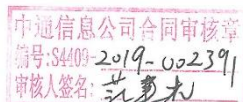 中通信息公司合同审核章
编号:S4409-2019-002391
审核人签名: